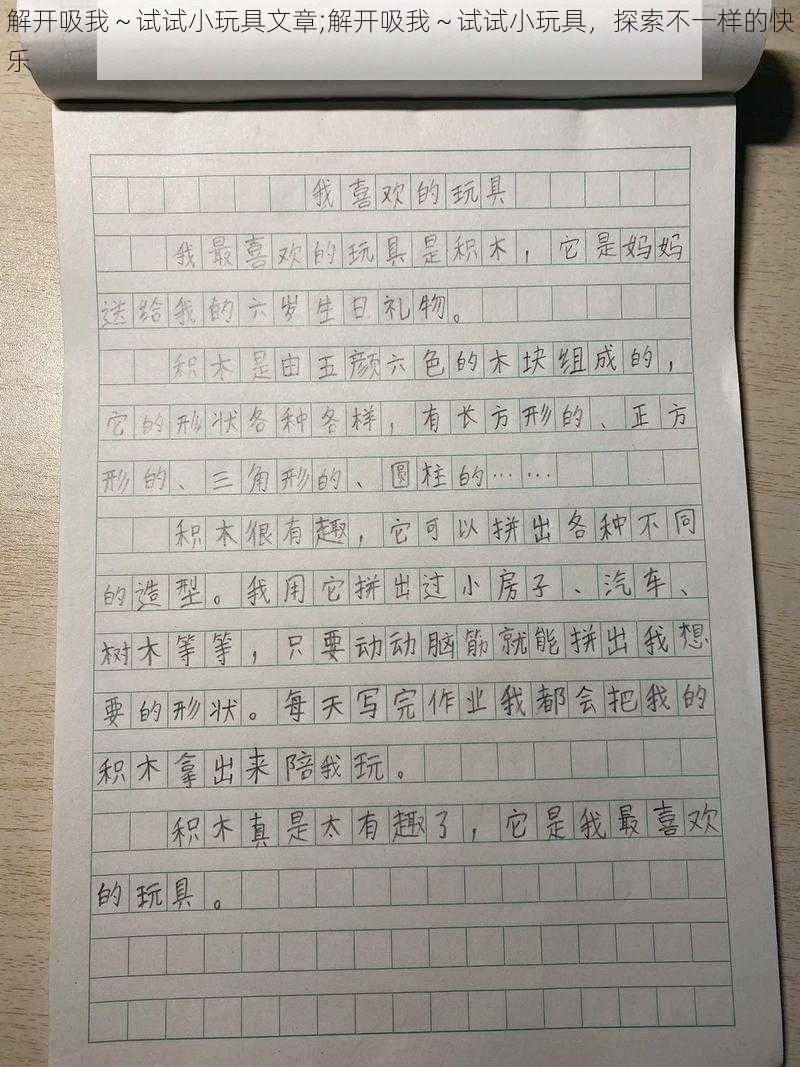 解开吸我～试试小玩具文章;解开吸我～试试小玩具，探索不一样的快
乐
我喜欢的玩具
我最喜欢的玩具是积木，它是妈妈
送给我的六岁生日礼物。
积木是由五颜六色的木块组成的，
它的形状各种各样，有长方形的、正方
形的、三角形的、圆柱的……
积木很有趣，它可以拼出各种不同
的造型。我用它拼出过小房子、汽车、
树木等等，只要动动脑筋就能拼出我想
要的形状。每天写完作业我都会把我的
积木拿出来陪我玩。
积木真是太有趣了，它是我最喜欢
的玩具。